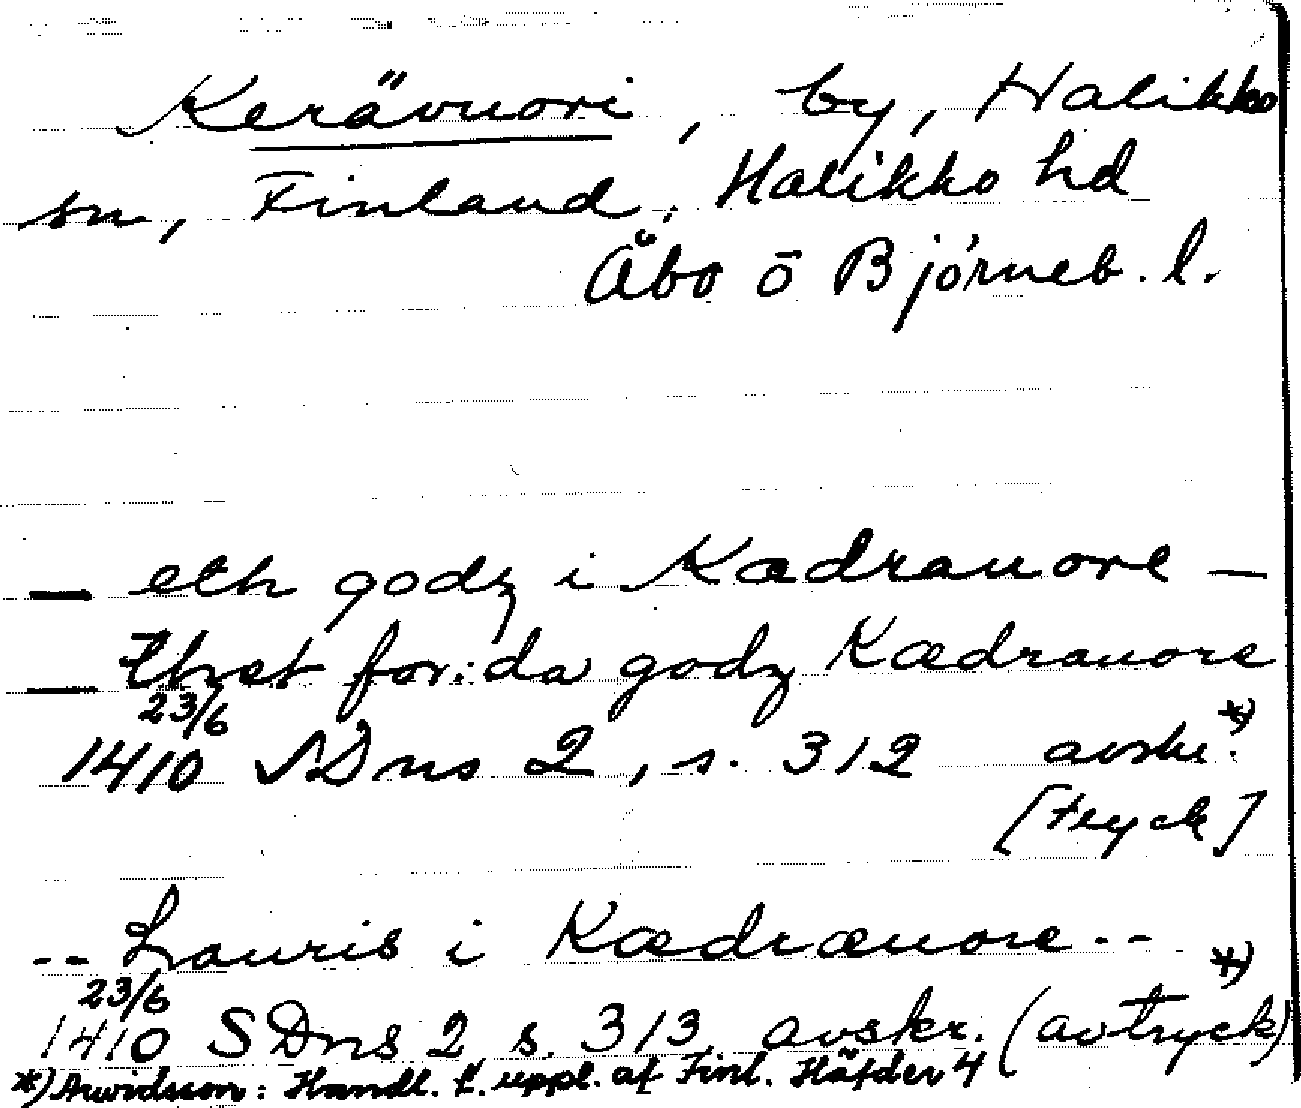 Kerävuori, by, Halikko
sn, Finland, Halikko hd
Åbo o Björneb. l.
— eth godz i Kædrauore —
— thet for:da godz Kædrauore
23/6
1410 SDns 2, s. 312 avskr. *)
[tryck]
-- Lauris i Kædræuore --
23/6 *)
1410 SDns 2 s. 313 avskr. (avtryck)
*) Arwidsson: Handl. t. uppl. af Finl. Häfder 4